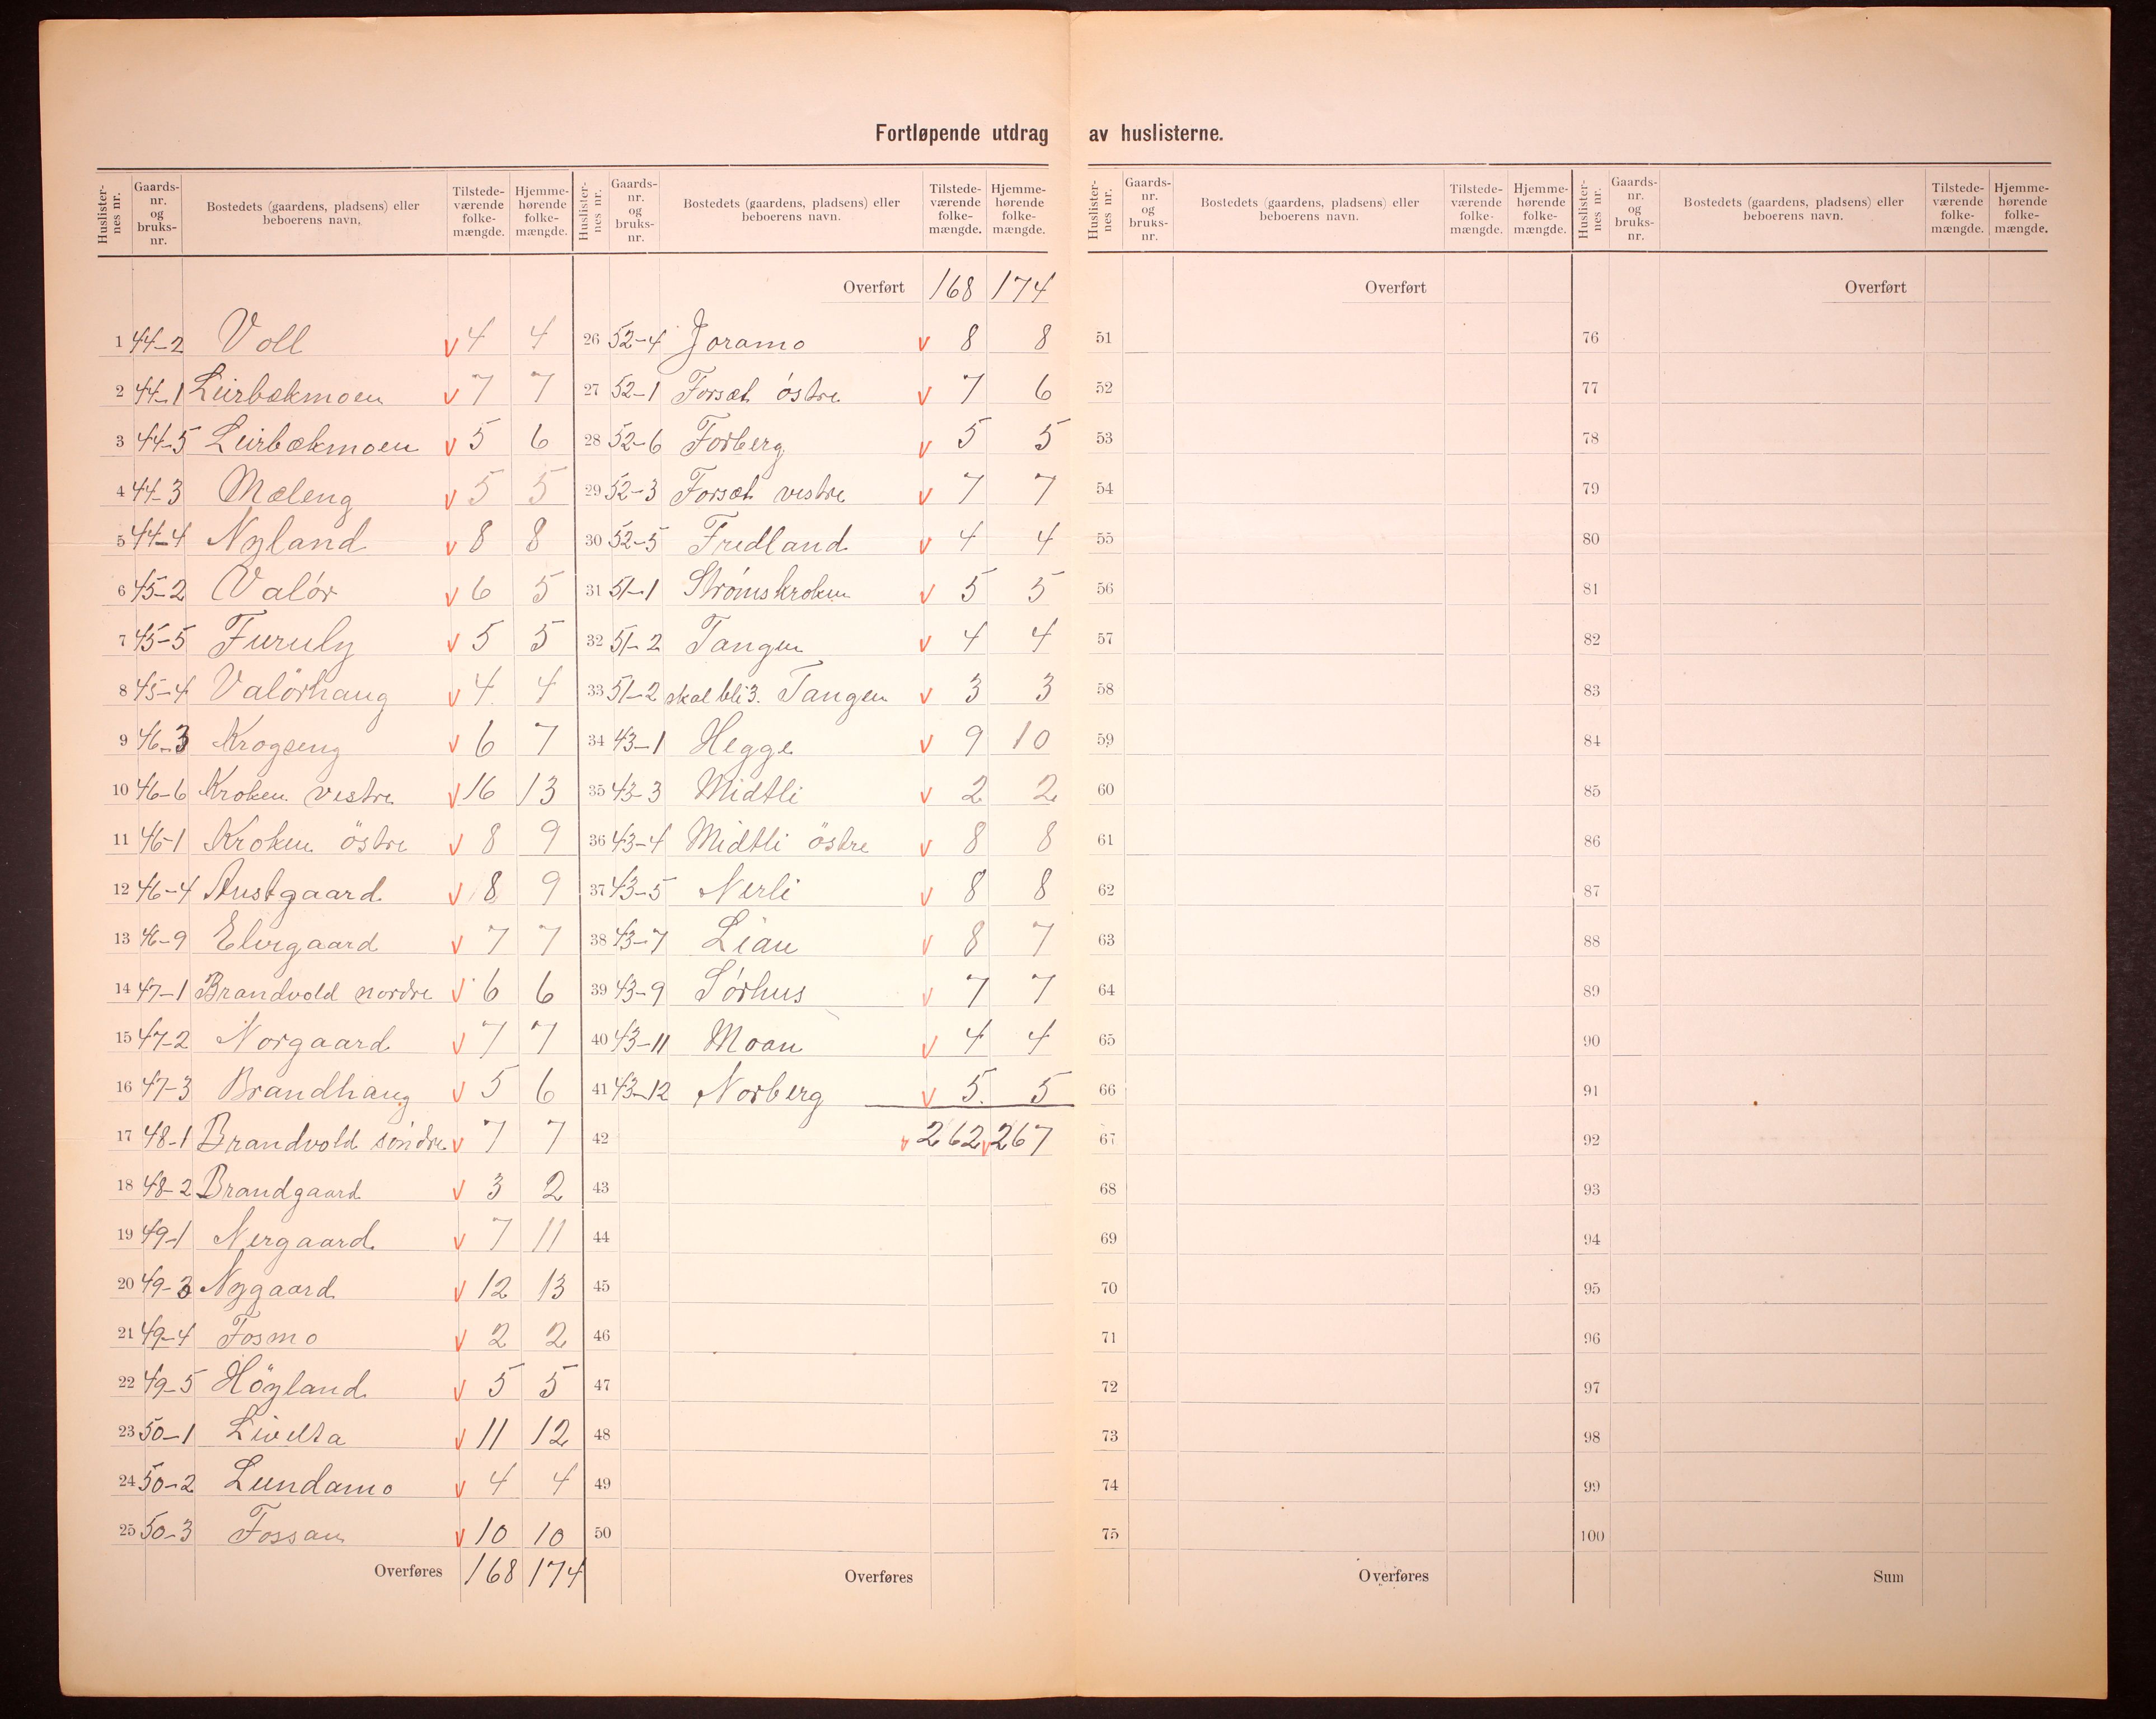 Fortløpende utdrag av huslisterne.
Huslister-nes nr. Gaards-nr. og bruks-nr. Bostedets (gaardens, pladsens) eller beboerens navn. Tilstede-værende folke-mængde. Hjemme-hørende folke-mængde.
1 44-2 Voll v 4 4
2 44-1 Leirbækmoen v 7 7
3 44-5 Leirbækmoen v 5 6
4 44-3 Mæleng v 5 5
5 44-4 Nyland v 8 8
6 45-2 Valör v 6 5
7 45-5 Furuly v 5 5
8 45-4 Valörhaug v 4 4
9 46-3 Krogseng v 6 7
10 46-6 Kroken vestre v 16 13
11 46-1 Kroken östre v 8 9
12 46-4 Austgaard v 8 9
13 46-9 Elvegaard v 7 7
14 47-1 Brandvold nordre v 6 6
15 47-2 Norgaard v 7 7
16 47-3 Brandhaug v 5 6
17 48-1 Brandvold söndre v 7 7
18 48-2 Brandgaard v 3 2
19 49-1 Nergaard v 7 11
20 49-3 Nygaard v 12 13
21 49-4 Fosmo v 2 2
22 49-5 Höyland v 5 5
23 50-1 Livelta v 11 12
24 50-2 Lundamo v 4 4
25 50-3 Fossan v 10 10
Overføres 168 174
Huslister-nes nr. Gaards-nr. og bruks-nr. Bostedets (gaardens, pladsens) eller beboerens navn. Tilstede-værende folke-mængde. Hjemme-hørende folke-mængde.
Overført 168 174
26 52-4 Joramo v 8 8
27 52-1 Forsæt östre v 7 6
28 52-6 Forberg v 5 5
29 52-3 Forsæt vestre v 7 7
30 52-5 Fredland v 4 4
31 51-1 Strömskroken v 5 5
32 51-2 Tangen v 4 4
33 51-2 skal bli 3. Tangen v 3 3
34 43-1 Hegge v 9 10
35 43-3 Midtli v 2 2
36 43-4 Midtli östre v 8 8
37 43-5 Nerli v 8 8
38 43-7 Lian v 8 7
39 43-9 Sörhus v 7 7
40 43-11 Moan v 4 4
41 43-12 Norberg v 5. 5
42 v 262 v 267
43
44
45
46
47
48
49
50
Overføres
Huslister-nes nr. Gaards-nr. og bruks-nr. Bostedets (gaardens, pladsens) eller beboerens navn. Tilstede-værende folke-mængde. Hjemme-hørende folke-mængde.
Overført
51
52
53
54
55
56
57
58
59
60
61
62
63
64
65
66
67
68
69
70
71
72
73
74
75
Overføres
Huslister-nes nr. Gaards-nr. og bruks-nr. Bostedets (gaardens, pladsens) eller beboerens navn. Tilstede-værende folke-mængde. Hjemme-hørende folke-mængde.
Overført
76
77
78
79
80
81
82
83
84
85
86
87
88
89
90
91
92
93
94
95
96
97
98
99
100
Sum